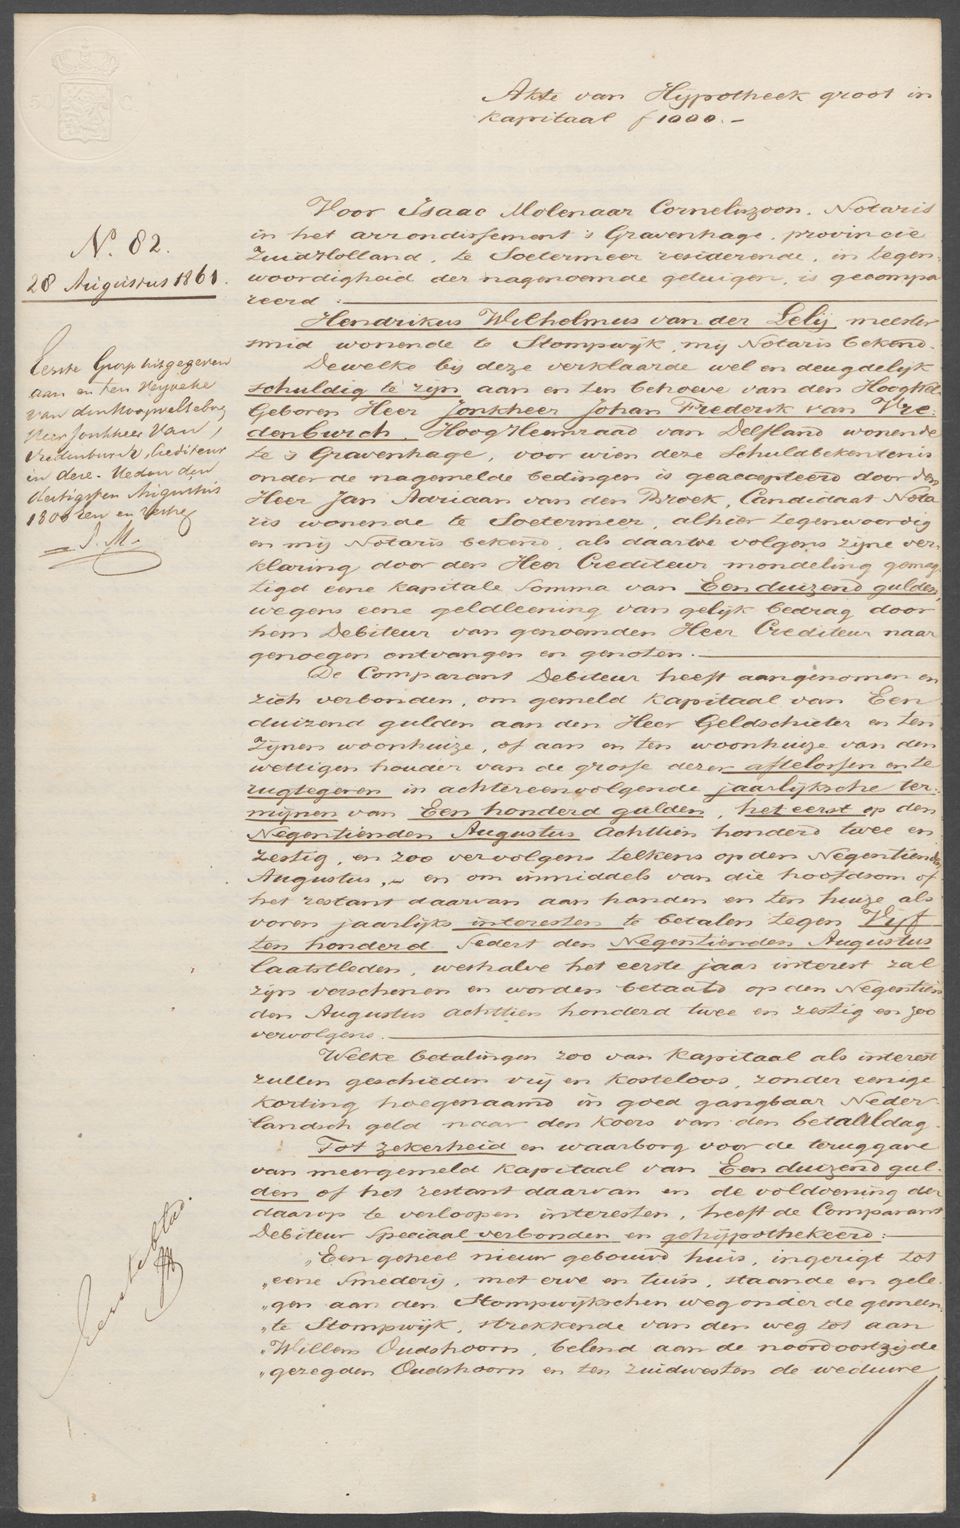 50 C.
Akte van Hypotheek groot in
kapitaal f 1000.-
No. 82.
28 Augustus 1861.
Eerste Grosse uitgegeven
aan en ten behoeve
van den Hoogwelgeb.
Heer Jonkheer van
Vredenburch, Crediteur
in deze. Heden den
dertigsten Augustus
1800 een en zestig
J. M.
Voor Isaac Molenaar Corneliszoon, Notaris
in het arrondissement 's Gravenhage, provincie
Zuidholland, te Soetermeer residerende, in tegen-
woordigheid der nagenoemde getuigen, is gecompa
reerd:
Hendrikus Wilhelmus van der Lelij, meester
smid wonende te Stompwijk, mij Notaris bekend.
Dewelke bij deze verklaarde wel en deugdelijk
schuldig te zijn aan en ten behoeve van den HoogWel
Geboren Heer Jonkheer Johan Frederik van Vre-
denburch, HoogHeemraad van Delfland wonende
te 's Gravenhage, voor wien deze Schuldbekentenis
onder de nagemelde bedingen is geaccepteerd door den
Heer Jan Adriaan van den Broek, Candidaat Nota
ris wonende te Soetermeer, alhier tegenwoordig
en mij Notaris bekend, als daartoe volgens zijne ver
klaring door den Heer Crediteur mondeling gemag
tigd eene kapitale Somma van Een duizend gulden,
wegens eene geldleening van gelijk bedrag door
hem Debiteur van genoemden Heer Crediteur naar
genoegen ontvangen en genoten.
De Comparant Debiteur heeft aangenomen en
zich verbonden, om gemeld kapitaal van Een
duizend gulden aan den Heer Geldschieter en ten
zijnen woonhuize, of aan en ten woonhuize van den
wettigen houder van de grosse dezer aftelossen en te
rugtegeven in achtereenvolgende jaarlijksche ter-
mijnen van Een honderd gulden, het eerst op den
Negentienden Augustus achttien honderd twee en
zestig, en zoo vervolgens telkens op den Negentienden
Augustus, en om inmiddels van die hoofdsom of
het restant daarvan aan handen en ten huize als
voren jaarlijks interesten te betalen tegen Vijf
ten honderd sedert den Negentienden Augustus
laatstleden, weshalve het eerste jaar interest zal
zijn verschenen en worden betaald op den Negentien
den Augustus achttien honderd twee en zestig en zoo
vervolgens.
Welke betalingen zoo van kapitaal als interest
zullen geschieden vrij en kosteloos, zonder eenige
korting hoegenaamd in goed gangbaar Neder-
landsch geld naar den koers van den betaaldag.
Tot zekerheid en waarborg voor de teruggave
van meergemeld kapitaal van Een duizend gul-
den of het restant daarvan en de voldoening der
daarop te verloopen interesten, heeft de Comparant
Debiteur speciaal verbonden en gehypothekeerd:
"Een geheel nieuw gebouwd huis, ingerigt tot
"eene Smederij, met erve en tuin, staande en gele-
"gen aan den Stompwijkschen weg onder de gemeen-
"te Stompwijk, strekkende van den weg tot aan
"Willem Oudshoorn, belend aan de noordoostzijde
"gezegden Oudshoorn en ten zuidwesten de weduwe
Eerste blad.